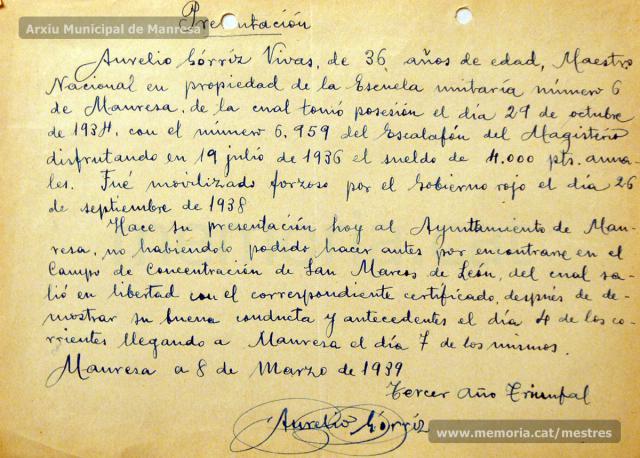 Presentación
Arxiu Municipal de Manresa
Aurelio Górriz Vivas, de 36 años de edad, Maestro
Nacional en propiedad de la Escuela unitaria número 6
de Manresa, de la cual tomó posesión el día 29 de octubre
de 1934, con el número 6,959 del Escalafón del Magisterio
disfrutando en 19 julio de 1936 el sueldo de 4.000 pts. anua-
les. Fué movilizado forzoso por el Gobierno rojo el día 26
de septiembre de 1938
Hace su presentación hoy al Ayuntamiento de Man-
resa, no habiéndolo podido hacer antes por encontrarse en el
Campo de Concentración de San Marcos de León, del cual sa-
lió en libertad con el correspondiente certificado, después de de-
mostrar su buena conducta y antecedentes el día 4 de los co-
rrientes llegando a Manresa el día 7 de los mismos.
Manresa a 8 de Marzo de 1939
Tercer Año Triunfal
Aurelio Górriz
www.memoria.cat/mestres